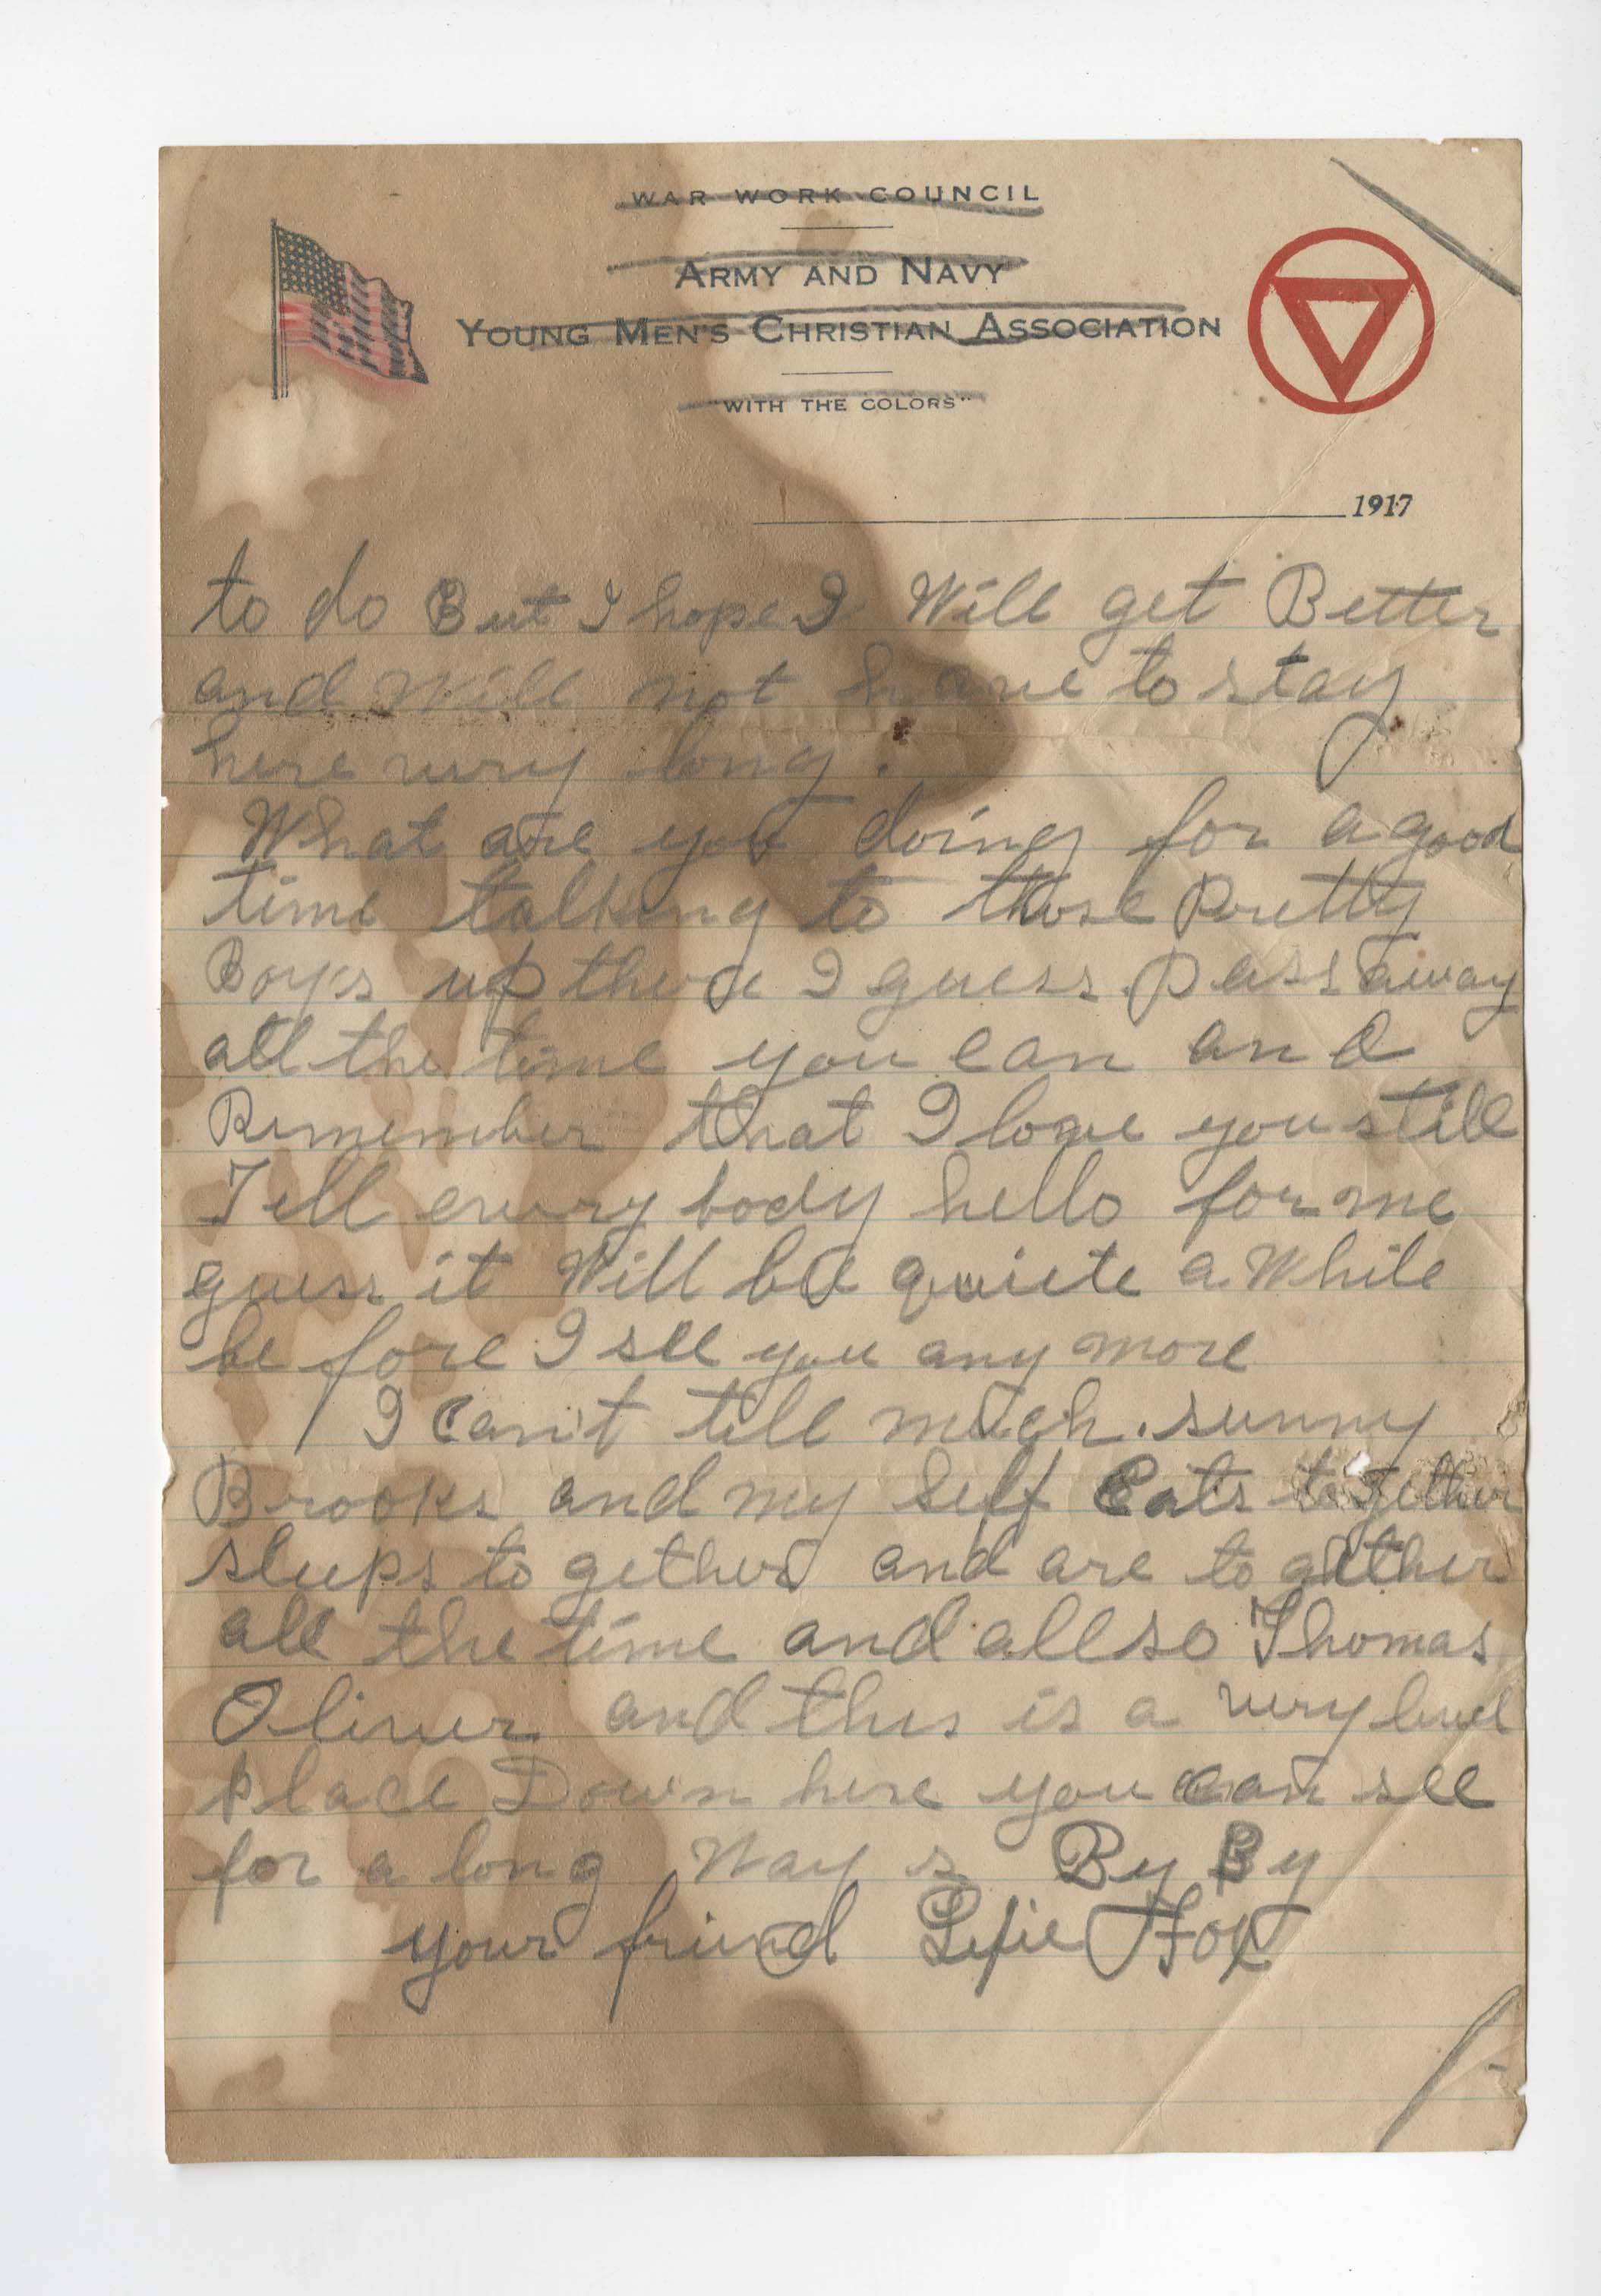 WAR WORK COUNCIL
ARMY AND NAVY
YOUNG MEN'S CHRISTIAN ASSOCIATION
"WITH THE COLORS"
1917
to do But I hope I Will get Better
and Will not have to stay
here very long.
What are you doing for a good
time talking to those Pretty
Boys up there I guess Pass away
all the time you can and
Remember that I love you still
Tell every body hello for me
guess it Will be quiete a While
be fore I see you any more
I can't tell much. sunny
Brooks and my Self Eats together
sleeps to gether and are to gether
all the time and allso Thomas
Oliver and this is a very level
place Down here you can see
for a long Way s By By
your friend Lefie Fox